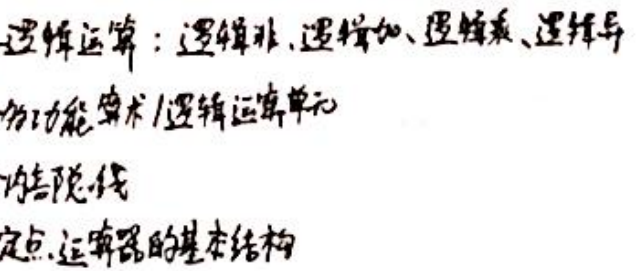 逻辑运算：逻辑非、逻辑加、逻辑乘、逻辑异
多功能算术/逻辑运算单元
内部总线
定点运算器的基本结构